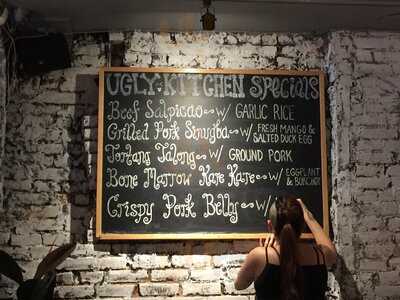 UGLY KITCHEN Specials
Beef Salpicao w/ GARLIC RICE
Grilled Pork Sinugba w/ FRESH MANGO & SALTED DUCK EGG
Tortang Talong w/ GROUND PORK
Bone Marrow Kare Kare w/ EGGPLANT & BOKCHOY
Crispy Pork Belly w/